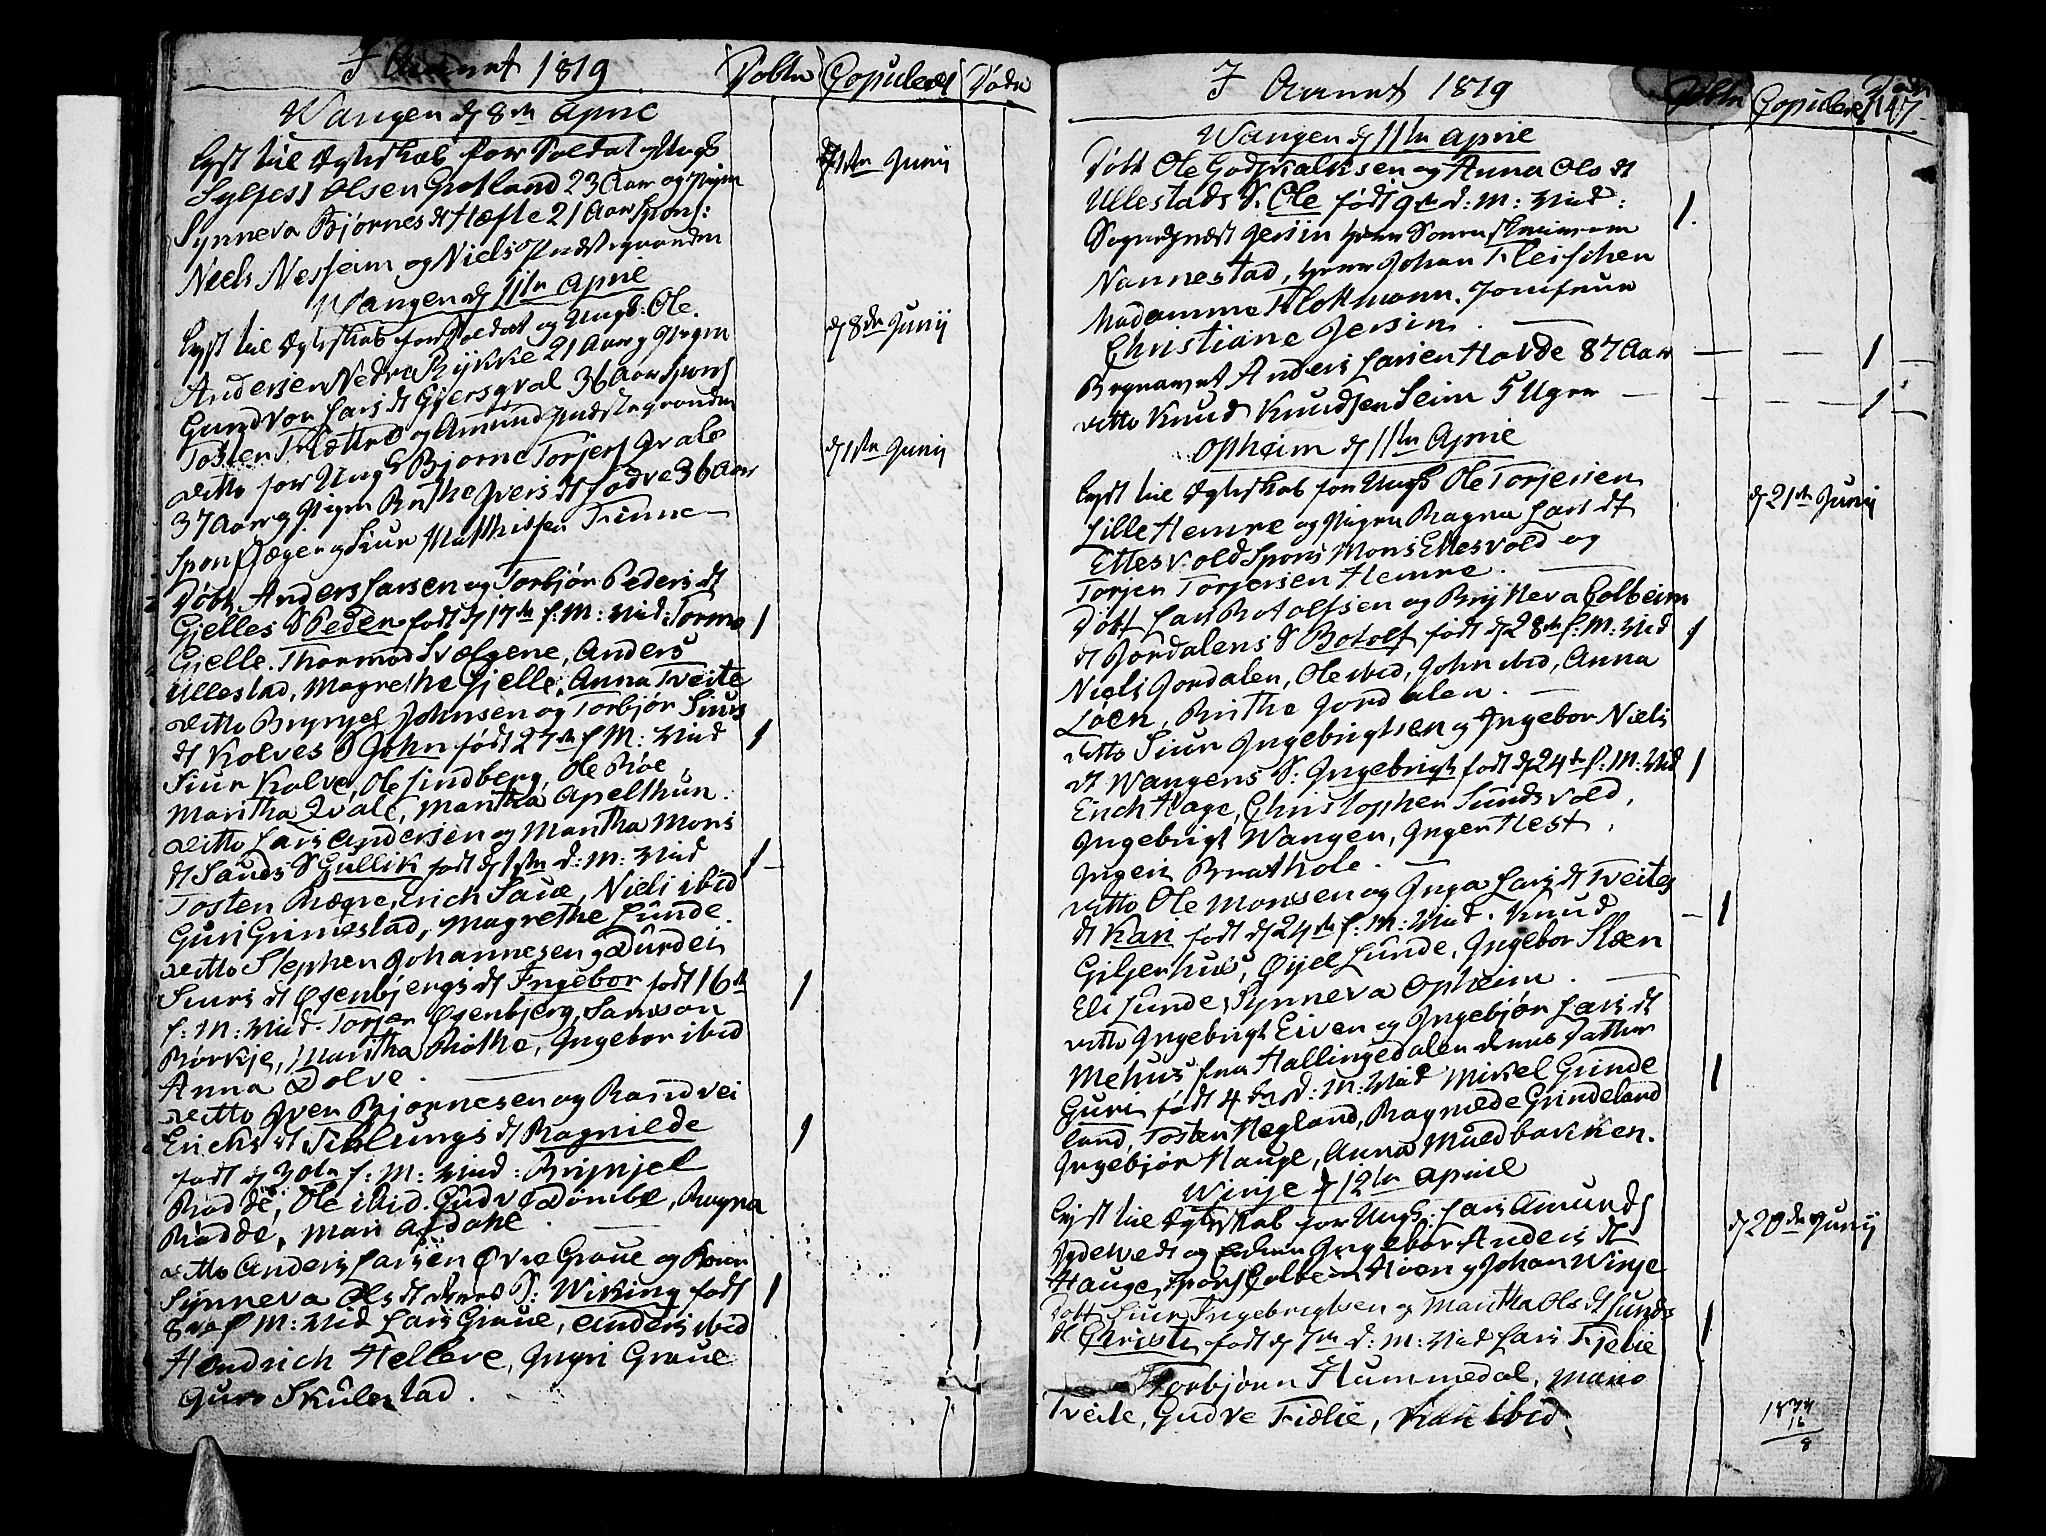 I Aaret 1819 Døbte Copulered Døde
Wangen d 8de April
Lyst til Ægteskab for Soldat og Ungk
Sylfest Olsen Grotland 23 Aar og Pigen
Synneva Bjørnes dt Hæfte 21 Aar Spons:
d 1ste Junij
Niels Nesheim og Niels
Wangen d 11te April
Lyst til Ægteskab for Soldat og Ungk: Ole
Andersen Nedre Rykke 21 Aar og Pigen
d 8de Junij
Gundvor Lars dt Gjersqval 36 Aar Spons
Tosten Flætte og Amund
ditto for Ungk Bjørne Torjers Qvale
37 Aar og Pigen Brithe Ivers dt Jodve 36 Aar
d 1ste Junij
Spons Jæger og Siur Matthissen Finne
Døbt Anders Larsen og Torbjør Peders dt
Gjelles S Peder født d 17de f: M: Vid: Tormo 1
Gjelle. Thormod Svelgene, Anders
Ullestad, Magrethe Gjelle, Anna Tveite
ditto Brynjel Johnsen og Torbjør Siurs
dt Kolves S John født 27de f M: Vid 1
Siur Kolve, Ole Lindberg, Ole Røe,
Maritha Qvale, Mantha Apelthun.
ditto Lars Andersen og Mantha Mons
dt Saues S Gullik født d 1ste d: M: Vid 1
Tosten Rægne, Erich Saue, Niels ibid
Guri Grimestad, Magrethe Lunde.
ditto Stephen Johannesen og Durdei
Siurs dt Øfenbjergs dt Ingebor født 16de 1
f: M: Vid. Torjer Øsenbjerg, Samson
Rorkje, Maritha Røthe, Ingebor ibid
Anna Dolve.
ditto Iver Bjørnesen og Randvei
Erichs dt Schlungs dt Ragnilde 1
født d 30te f: M: Vid: Brynjel
Rødde, Ole ibid. Gudve Dømbe, Ragna
Rødde, Mari Afdahl.
ditto Anders Larsen Øvre Graue og Kone
Synneva Ols dt deres S: Wiking født 1
8de f M: Vid Lars Graue, Anders ibid
Hendrich Hellere, Ingri Graue
Guro Skulestad.
I Aaret 1819 Døbte Copulered Døde 147
Wangen d 11te April
Døbt Ole Godskalksen og Anna Ols dt
Ullestads S. Ole født 9de d: M: Vid: 1.
Sognepræst Gersin,
Nannestad, Herr Johan Fleischer
Madamme Klokmann. Jomfrue
Christiane Gersin.
Begravet Anders Larsen Horde 87 Aar 1
ditto Knud Knudsen Seim 5 Uger 1
Opheim d 11te April
Lyst til Ægteskab for Ungk Ole Torjersen
Lille Hemre og Pigen Ragna Lars dt d 21de Junij
Ettesvold Spons Mons Ettesvold og
Torjer Torjersen Hemre.
Døbt Lars Botolfsen og Brytteva Colbeins
dt Jordalens S Botolf født d 28de f: M: Vid 1
Niels Jordalen, Ole ibid, John ibid, Anna
Løen, Brithe Jordalen.
ditto Siur Ingebrigtsen og Ingebor Niels
dt Wangens S: Ingebrigt født d 24de f: M: Vid 1
Erich Hage, Christopher Sundsvold,
Ingebrigt Wangen, Inger Hest,
Ingeri Brathole.
ditto Ole Monsen og Inga Lars dt Tveites
dt Kari født d 24de f: M: Vid. Knud 1
Giljerhus, Øijel Lunde, Ingebor Støen
Eli Lunde, Synneva Opheim.
ditto Ingebrigt Eiven og Ingebjør Lars dt
Mehus fra Hallingedalen deres Datter
Guri født 4de d: M: Vid Mikel Grinde 1
land, Tosten Hegland, Ragnilde Grindeland
Ingebjør Hauge, Anna Muldbakken.
Winje d 12te April
Lyst til Ægteskab for Ungk: Lars Amunds
Dydewedt og Enken Ingebor Anders dt d 20de Junij
Hauge, Spons Colbein Høen og Johan Winje
Døbt Siur Ingebrigtsen og Mantha Ols dt Sunds
dt Christi født d 7de d: M: Vid Lars Fjelie 1
Torbjørn Hummedal, Mario
Tveite, Gudve Fiælie, Kari ibid.